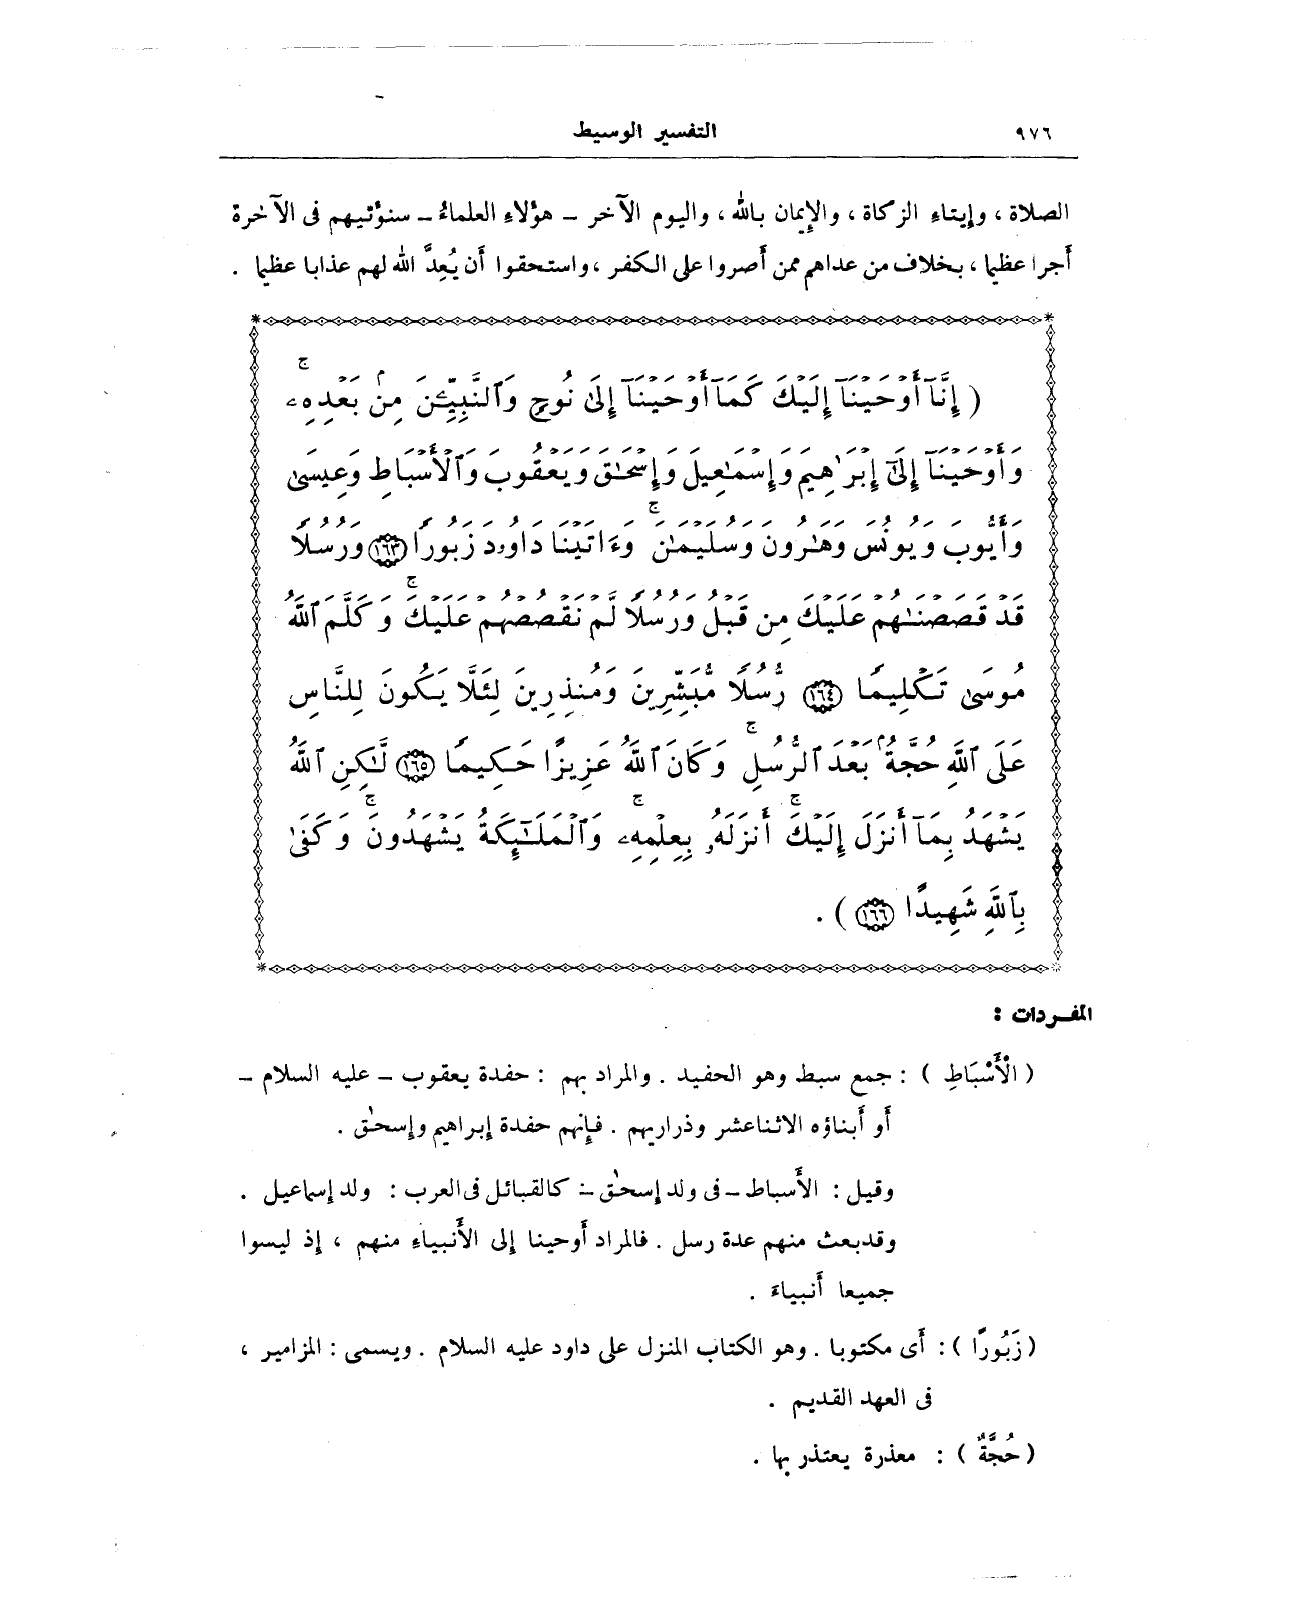 ٩٧٦
التفسير الوسيط
الصلاة ، وإيتاءِ الزكاة ، والإيمان بالله ، واليوم الآخر – هؤلاءِ العلماءُ – سنؤتيهم فى الآخرة
أجرا عظيما ، بخلاف من عداهم ممن أصروا على الكفر ، واستحقوا أن يُعِدَّ الله لهم عذابا عظيما .
( إِنَّآ أَوْحَيْنَآ إِلَيْكَ كَمَآ أَوْحَيْنَآ إِلَىٰ نُوحٍ وَٱلنَّبِيِّـۧنَ مِنۢ بَعْدِهِۦ ۚ
وَأَوْحَيْنَآ إِلَىٰٓ إِبْرَٰهِيمَ وَإِسْمَٰعِيلَ وَإِسْحَٰقَ وَيَعْقُوبَ وَٱلْأَسْبَاطِ وَعِيسَىٰ
وَأَيُّوبَ وَيُونُسَ وَهَٰرُونَ وَسُلَيْمَٰنَ ۚ وَءَاتَيْنَا دَاوُۥدَ زَبُورًا ١٦٣ وَرُسُلًا
قَدْ قَصَصْنَٰهُمْ عَلَيْكَ مِن قَبْلُ وَرُسُلًا لَّمْ نَقْصُصْهُمْ عَلَيْكَ ۚ وَكَلَّمَ ٱللَّهُ
مُوسَىٰ تَكْلِيمًا ١٦٤ رُّسُلًا مُّبَشِّرِينَ وَمُنذِرِينَ لِئَلَّا يَكُونَ لِلنَّاسِ
عَلَى ٱللَّهِ حُجَّةٌۢ بَعْدَ ٱلرُّسُلِ ۚ وَكَانَ ٱللَّهُ عَزِيزًا حَكِيمًا ١٦٥ لَّٰكِنِ ٱللَّهُ
يَشْهَدُ بِمَآ أَنزَلَ إِلَيْكَ ۖ أَنزَلَهُۥ بِعِلْمِهِۦ ۖ وَٱلْمَلَٰٓئِكَةُ يَشْهَدُونَ ۚ وَكَفَىٰ
بِٱللَّهِ شَهِيدًا ١٦٦ ) .
المفـردات :
( الْأَسْبَاطِ ) : جمع سبط وهو الحفيد . والمراد بهم : حفدة يعقوب – عليه السلام –
أو أبناؤه الاثناعشر وذراريهم . فإنهم حفدة إبراهيم وإسحٰق .
وقيل : الأسباط – فى ولد إسحٰق – كالقبائل فى العرب : ولد إسماعيل .
وقدبعث منهم عدة رسل . فالمراد أوحينا إلى الأنبياءِ منهم ، إذ ليسوا
جميعا أنبياءَ .
( زَبُورًا ) : أى مكتوبا . وهو الكتاب المنزل على داود عليه السلام . ويسمى : المزامير ،
فى العهد القديم .
( حُجَّةٌ ) : معذرة يعتذر بها .